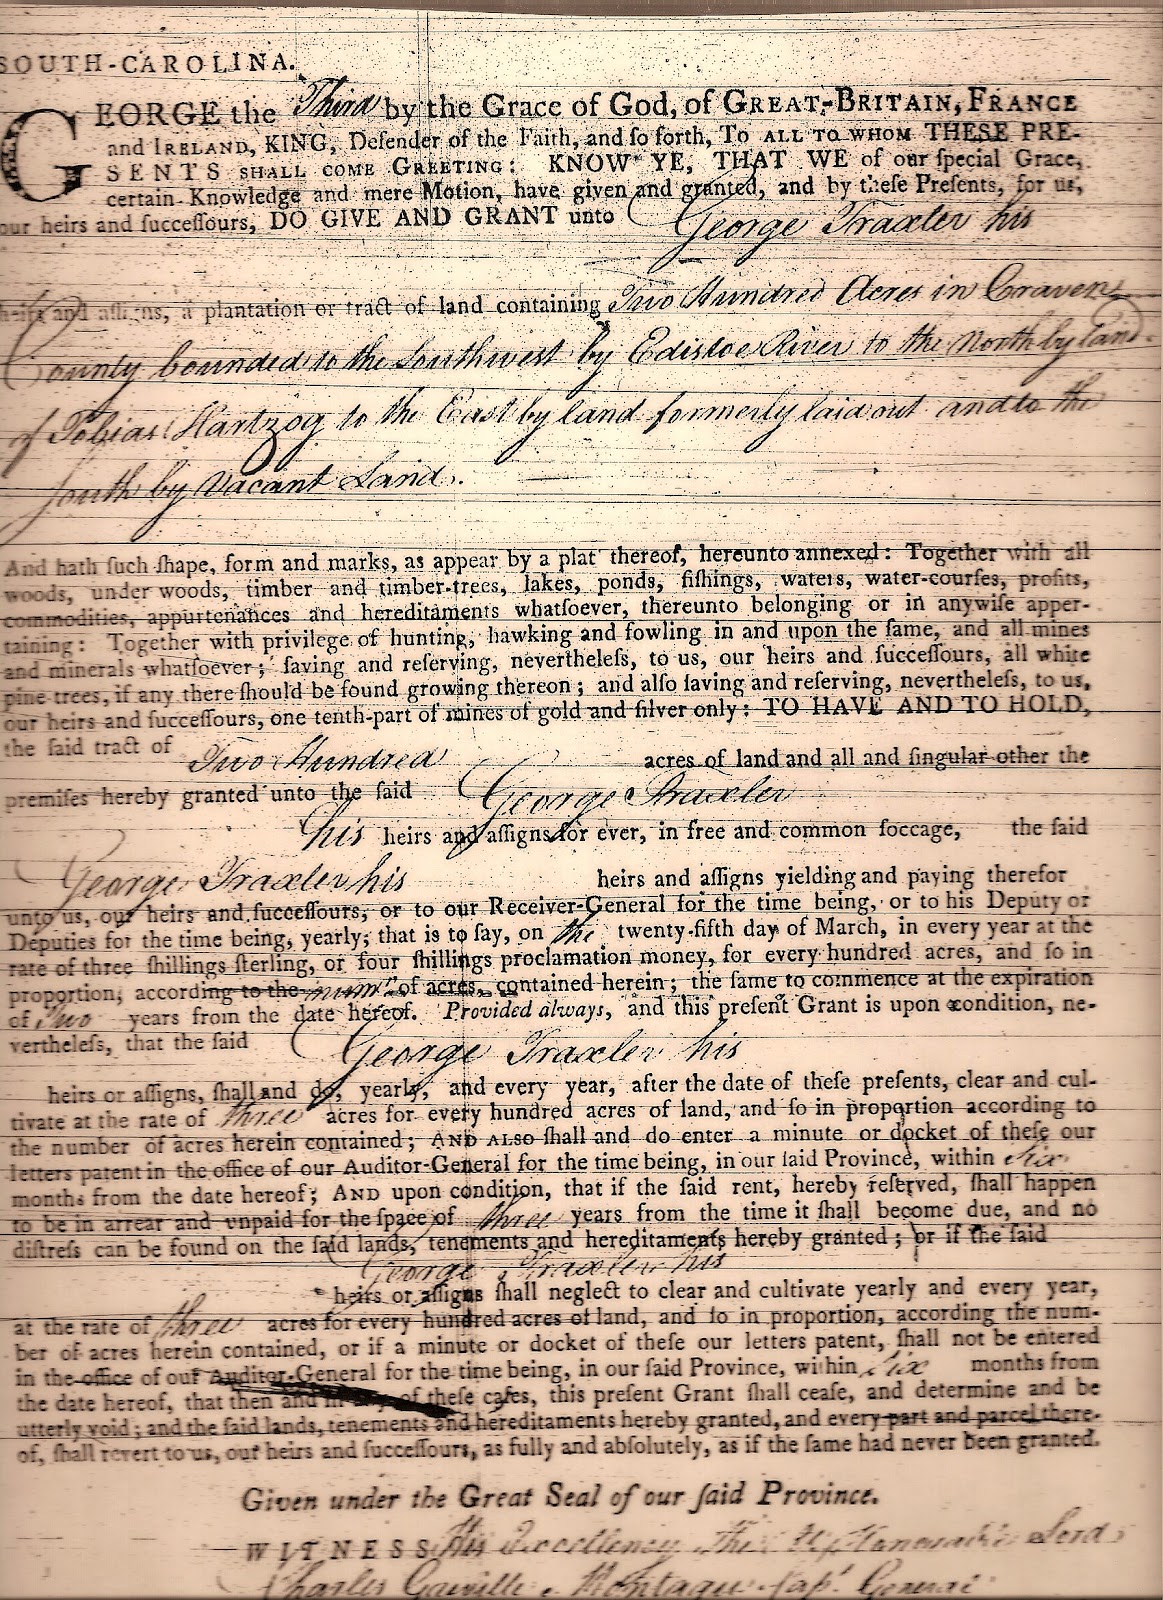 SOUTH-CAROLINA.
GEORGE the Third by the Grace of God, of GREAT-BRITAIN, FRANCE
and IRELAND, KING, Defender of the Faith, and ſo forth, TO ALL TO WHOM THESE PRE-
SENTS SHALL COME GREETING: KNOW YE, THAT WE of our ſpecial Grace,
certain Knowledge and mere Motion, have given and granted, and by theſe Preſents, for us,
our heirs and ſucceſſours, DO GIVE AND GRANT unto George Traxler his
heirs and aſſigns, a plantation or tract of land containing Two Hundred Acres in Craven
County bounded to the Southwest by Edistoe River to the North by land
of Tobias Hartzog to the East by land formerly laid out and to the
South by Vacant Land.
And hath ſuch ſhape, form and marks, as appear by a plat thereof, hereunto annexed: Together with all
woods, under woods, timber and timber-trees, lakes, ponds, fiſhings, waters, water-courſes, profits,
commodities, appurtenances and hereditaments whatſoever, thereunto belonging or in anywiſe apper-
taining: Together with privilege of hunting, hawking and fowling in and upon the ſame, and all mines
and minerals whatſoever; ſaving and reſerving, nevertheleſs, to us, our heirs and ſucceſſours, all white
pine-trees, if any there ſhould be found growing thereon; and alſo ſaving and reſerving, nevertheleſs, to us,
our heirs and ſucceſſours, one tenth-part of mines of gold and ſilver only: TO HAVE AND TO HOLD,
the ſaid tract of Two Hundred acres of land and all and ſingular other the
premiſes hereby granted unto the ſaid George Traxler
his heirs and aſſigns for ever, in free and common ſoccage, the ſaid
George Traxler his heirs and aſſigns yielding and paying therefor
unto us, our heirs and ſucceſſours, or to our Receiver-General for the time being, or to his Deputy or
Deputies for the time being, yearly; that is to ſay, on the twenty-fifth day of March, in every year at the
rate of three ſhillings ſterling, or four ſhillings proclamation money, for every hundred acres, and ſo in
proportion, according to the numr. of acres, contained herein; the ſame to commence at the expiration
of Two years from the date hereof. Provided always, and this preſent Grant is upon condition, ne-
vertheleſs, that the ſaid George Traxler his
heirs or aſſigns, ſhall and do, yearly, and every year, after the date of theſe preſents, clear and cul-
tivate at the rate of three acres for every hundred acres of land, and ſo in proportion according to
the number of acres herein contained; AND ALSO ſhall and do enter a minute or docket of theſe our
letters patent in the office of our Auditor-General for the time being, in our ſaid Province, within Six
months from the date hereof; AND upon condition, that if the ſaid rent, hereby reſerved, ſhall happen
to be in arrear and unpaid for the ſpace of three years from the time it ſhall become due, and no
diſtreſs can be found on the ſaid lands, tenements and hereditaments hereby granted; or if the ſaid
George Traxler his
heirs or aſſigns ſhall neglect to clear and cultivate yearly and every year,
at the rate of three acres for every hundred acres of land, and ſo in proportion, according the num-
ber of acres herein contained, or if a minute or docket of theſe our letters patent, ſhall not be entered
in the office of our Auditor-General for the time being, in our ſaid Province, within Six months from
the date hereof, that then and in of theſe caſes, this preſent Grant ſhall ceaſe, and determine and be
utterly void; and the ſaid lands, tenements and hereditaments hereby granted, and every part and parcel there-
of, ſhall revert to us, our heirs and ſucceſſours, as fully and abſolutely, as if the ſame had never been granted.
Given under the Great Seal of our ſaid Province.
WITNESS His Excellency The Lord
Charles Greville Montagu Capt. General